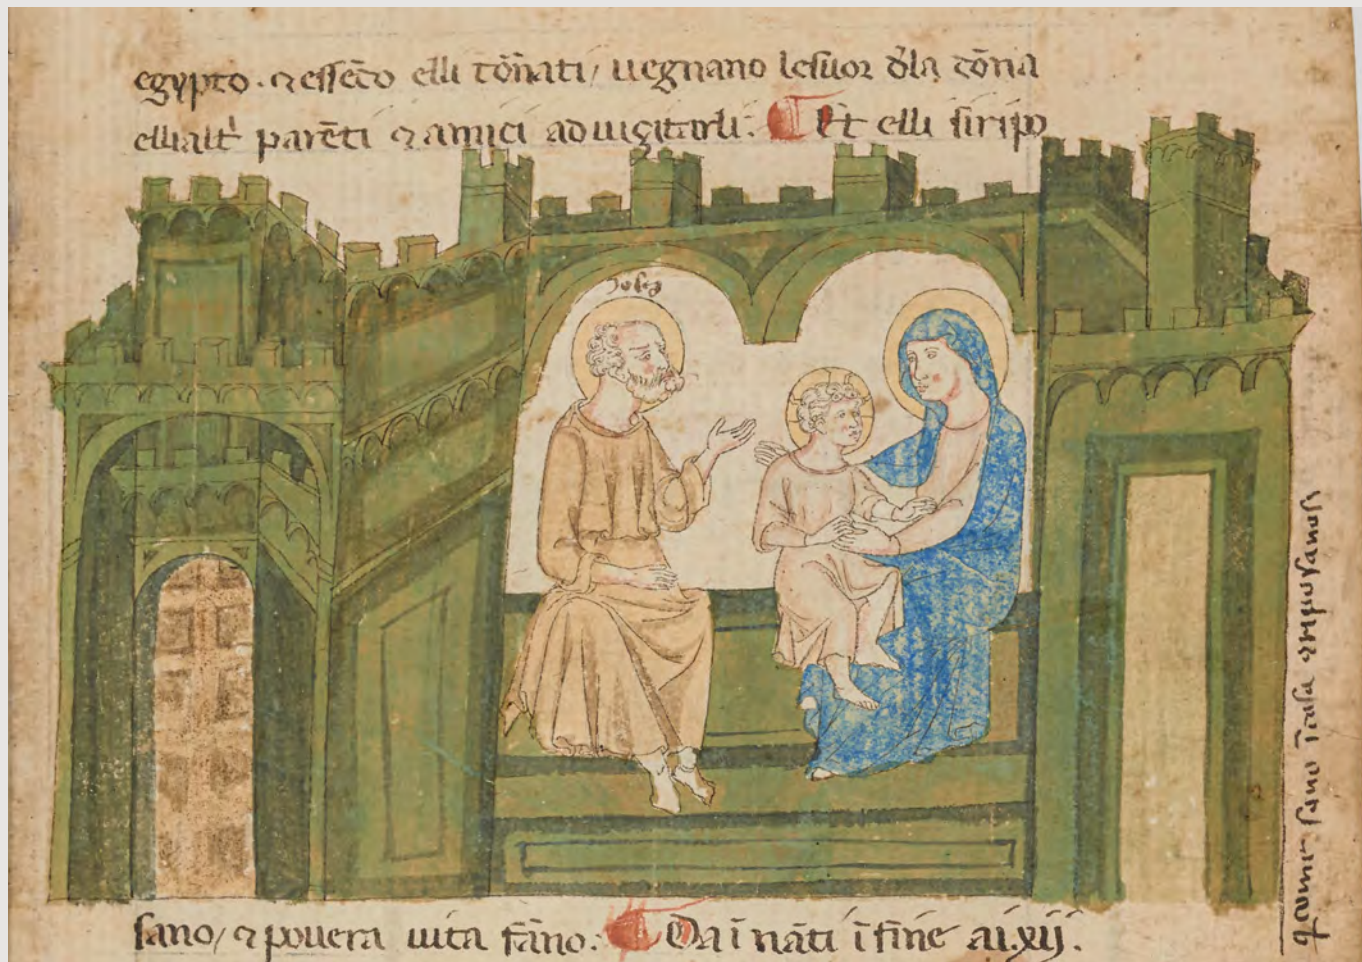 egypto. ⁊ essēdo elli tōrnati, uegnano lesuor d̓la dōna
elli alt̓ parēti ⁊ amici aduiçitarli: Et elli siripo
Josep
sano, ⁊ pouera uita fāno: Da ī nāti ī fine ai.xij.